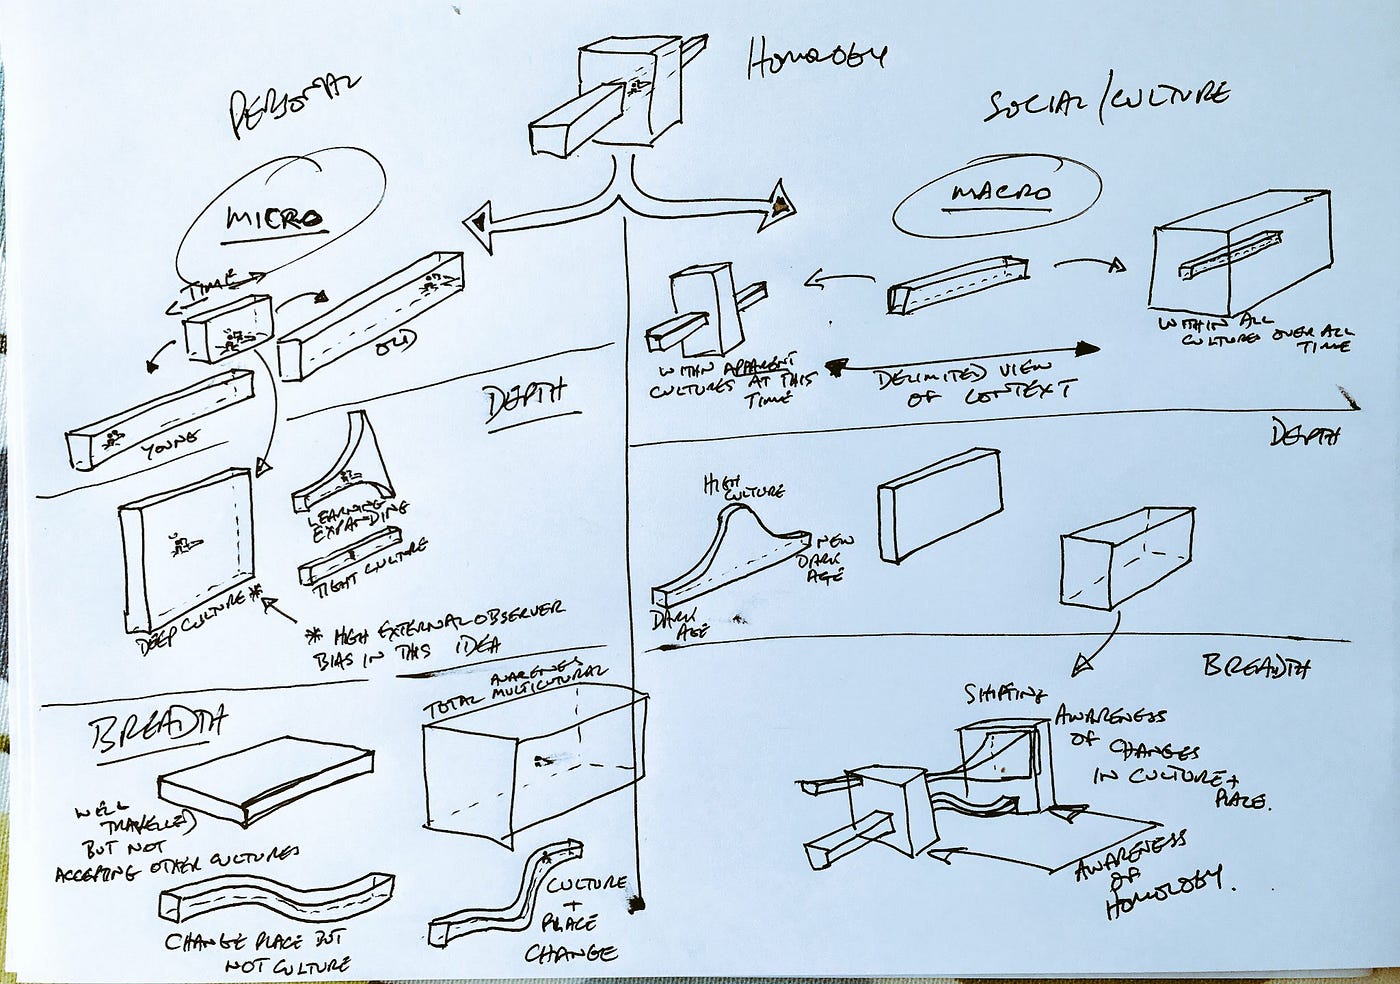 HOMOLOGY
PERSONAL
SOCIAL/CULTURE
MICRO
MACRO
TIME
OLD
YOUNG
WITHIN APPARENT
CULTURES AT THIS
TIME
DELIMITED VIEW
OF CONTEXT
WITHIN ALL
CULTURES OVER ALL
TIME
DEPTH
DEPTH
LEARNING
EXPANDING
TIGHT CULTURE
DEEP CULTURE *
* HIGH EXTERNAL OBSERVER
BIAS IN THIS IDEA
HIGH
CULTURE
NEW
DARK
AGE
DARK
AGE
BREADTH
BREADTH
TOTAL AWARENESS
MULTICUTURAL
WELL
TRAVELLED
BUT NOT
ACCEPTING OTHER CULTURES
CHANGE PLACE BUT
NOT CULTURE
CULTURE
+
PLACE
CHANGE
AWARENESS
OF CHANGES
IN CULTURE +
PLACE.
AWARENESS
OF
HOMOLOGY.